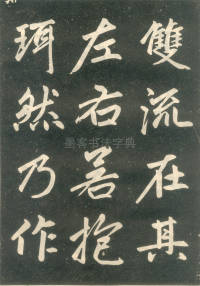 雙流在其
左右若抱
珥然乃作
墨客书法字典